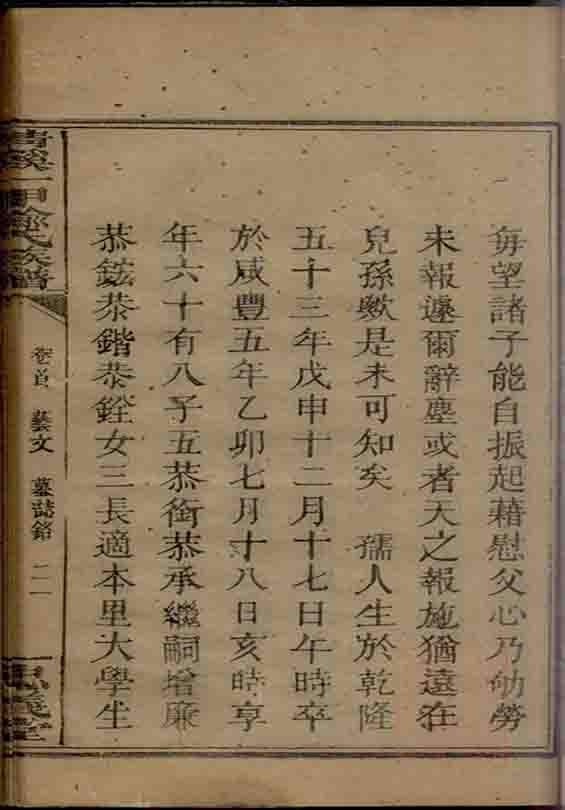 每望諸子能自振起藉慰父心乃劬勞
未報遽爾辭塵或者天之報施猶遠在
兒孫歟是未可知矣　孺人生於乾隆
五十三年戊申十二月十七日午時卒
於咸豐五年乙卯七月十八日亥時享
年六十有八子五恭銜恭承繼嗣增廉
恭鋐恭鍇恭銓女三長適本里大學生
氏族譜
卷首　藝文　墓誌銘　二一
堂